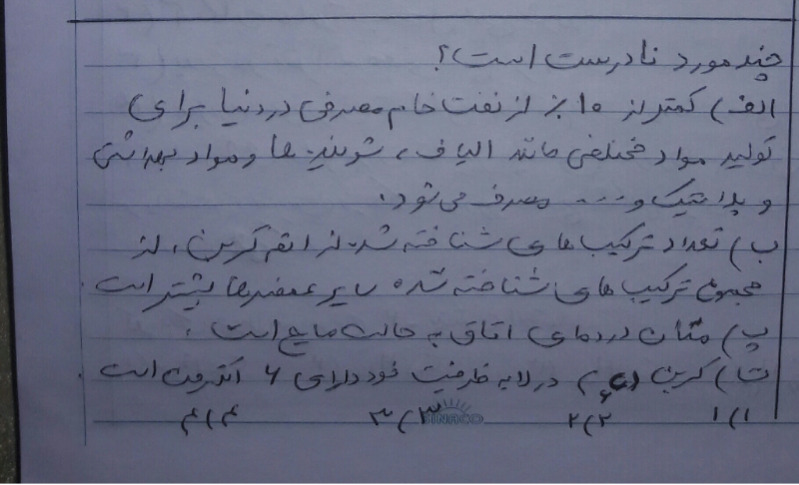 چند مورد نادرست است؟
الف) کمتر از ۱۰٪ از نفت خام مصرفی در دنیا برای
تولید مواد مختلفی مانند الیاف، شوینده ها و مواد بهداشتی
و پلاستیک و .... مصرف می شود.
ب) تعداد ترکیب های شناخته شده از اتم کربن، از
مجموع ترکیب های شناخته شده سایر عنصرها بیشتر است.
پ) متان در دمای اتاق به حالت مایع است.
ت) کربن (₆C) در لایه ظرفیت خود دارای ۶ الکترون است.
۱) ۱ ۲) ۲ ۳) ۳ ۴) ۴